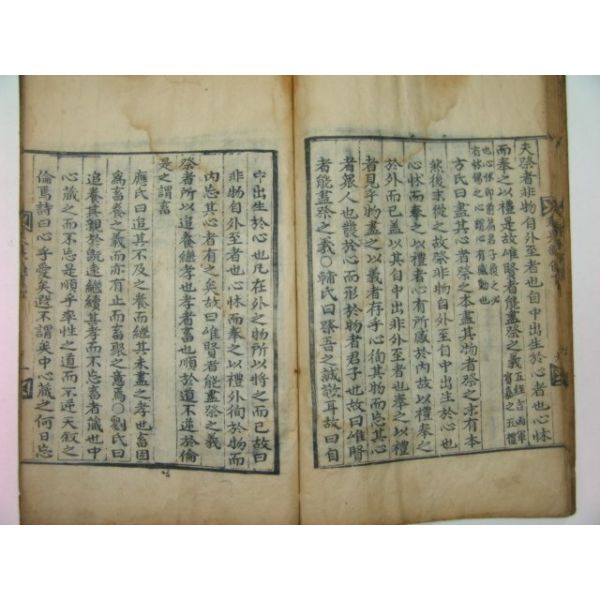 夫祭者非物自外至者也自中出生於心者也心怵
而奉之以禮是故唯賢者能盡祭之義 五經吉凶軍
賓嘉之五禮
也心怵即前篇君子履之必
有怵惕之心謂心有感動也
方氏曰盡其心者祭之本盡其物者祭之末有本
然後末從之故祭非物自外至自中出生於心也
心怵而奉之以禮者心有所感於內故以禮奉之
於外而已蓋以其自中出非外至者也奉之以禮
者見乎物盡之以義者存乎心徇其物而忘其心
者衆人也發於心而形於物者君子也故曰唯賢
者能盡祭之義○輔氏曰發吾之誠慤耳故曰自
中出生於心也凡在外之物所以將之而已故曰
非物自外至者也心怵而奉之以禮外徇於物而
內忘其心者有之矣故曰唯賢者能盡祭之義
祭者所以追養繼孝也孝者畜也順於道不逆於倫
是之謂畜
應氏曰追其不及之養而繼其未盡之孝也畜固
爲畜養之義而亦有止而畜聚之意焉○劉氏曰
追養其親於既遠繼續其孝而不忘畜者藏也中
心藏之而不忘是順乎率性之道而不逆天叙之
倫焉詩曰心乎愛矣遐不謂矣中心藏之何日忘